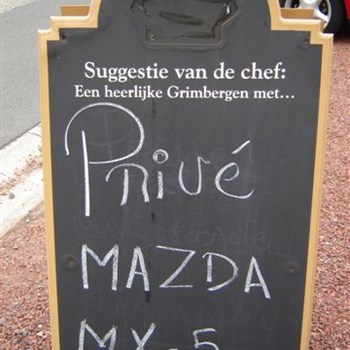 Suggestie van de chef:
Een heerlijke Grimbergen met...
Privé
MAZDA
MX-5